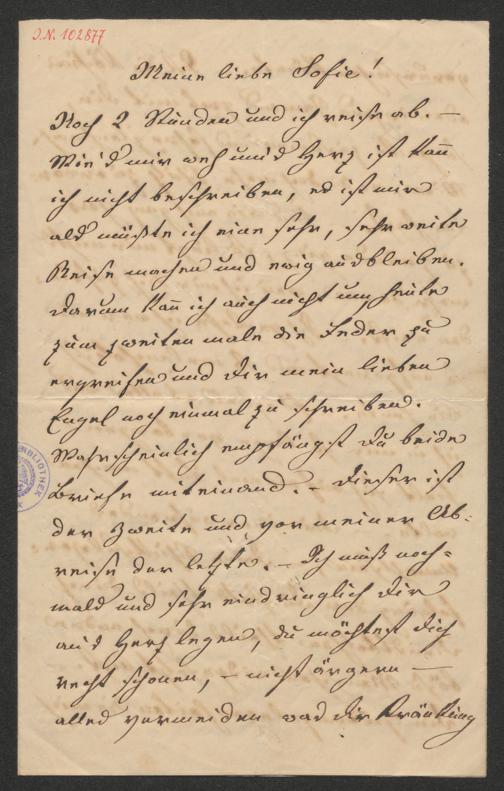 J.N. 102877
Meine liebe Sofie!
Noch 2 Stunden und ich reise ab. —
Wie's mir weh um's Herz ist kann
ich nicht beschreiben, es ist mir
als müßte ich eine sehr, sehr weite
Reise machen und ewig ausbleiben.
Darum kann ich auch nicht um heute
zum zweiten male die Feder zu
ergreifen und dir mein lieben
Engel noch einmal zu schreiben.
Wahrscheinlich empfängst du beide
Briefe miteinand. – Dieser ist
der zweite und vor meiner Ab-
reise der letzte. – Ich muß noch-
mals und sehr eindringlich dir
ans Herz legen, du möchtest dich
recht schonen, – nicht ärgern —
alles vermeiden was dir Kränkung
BIBLIOTHEK